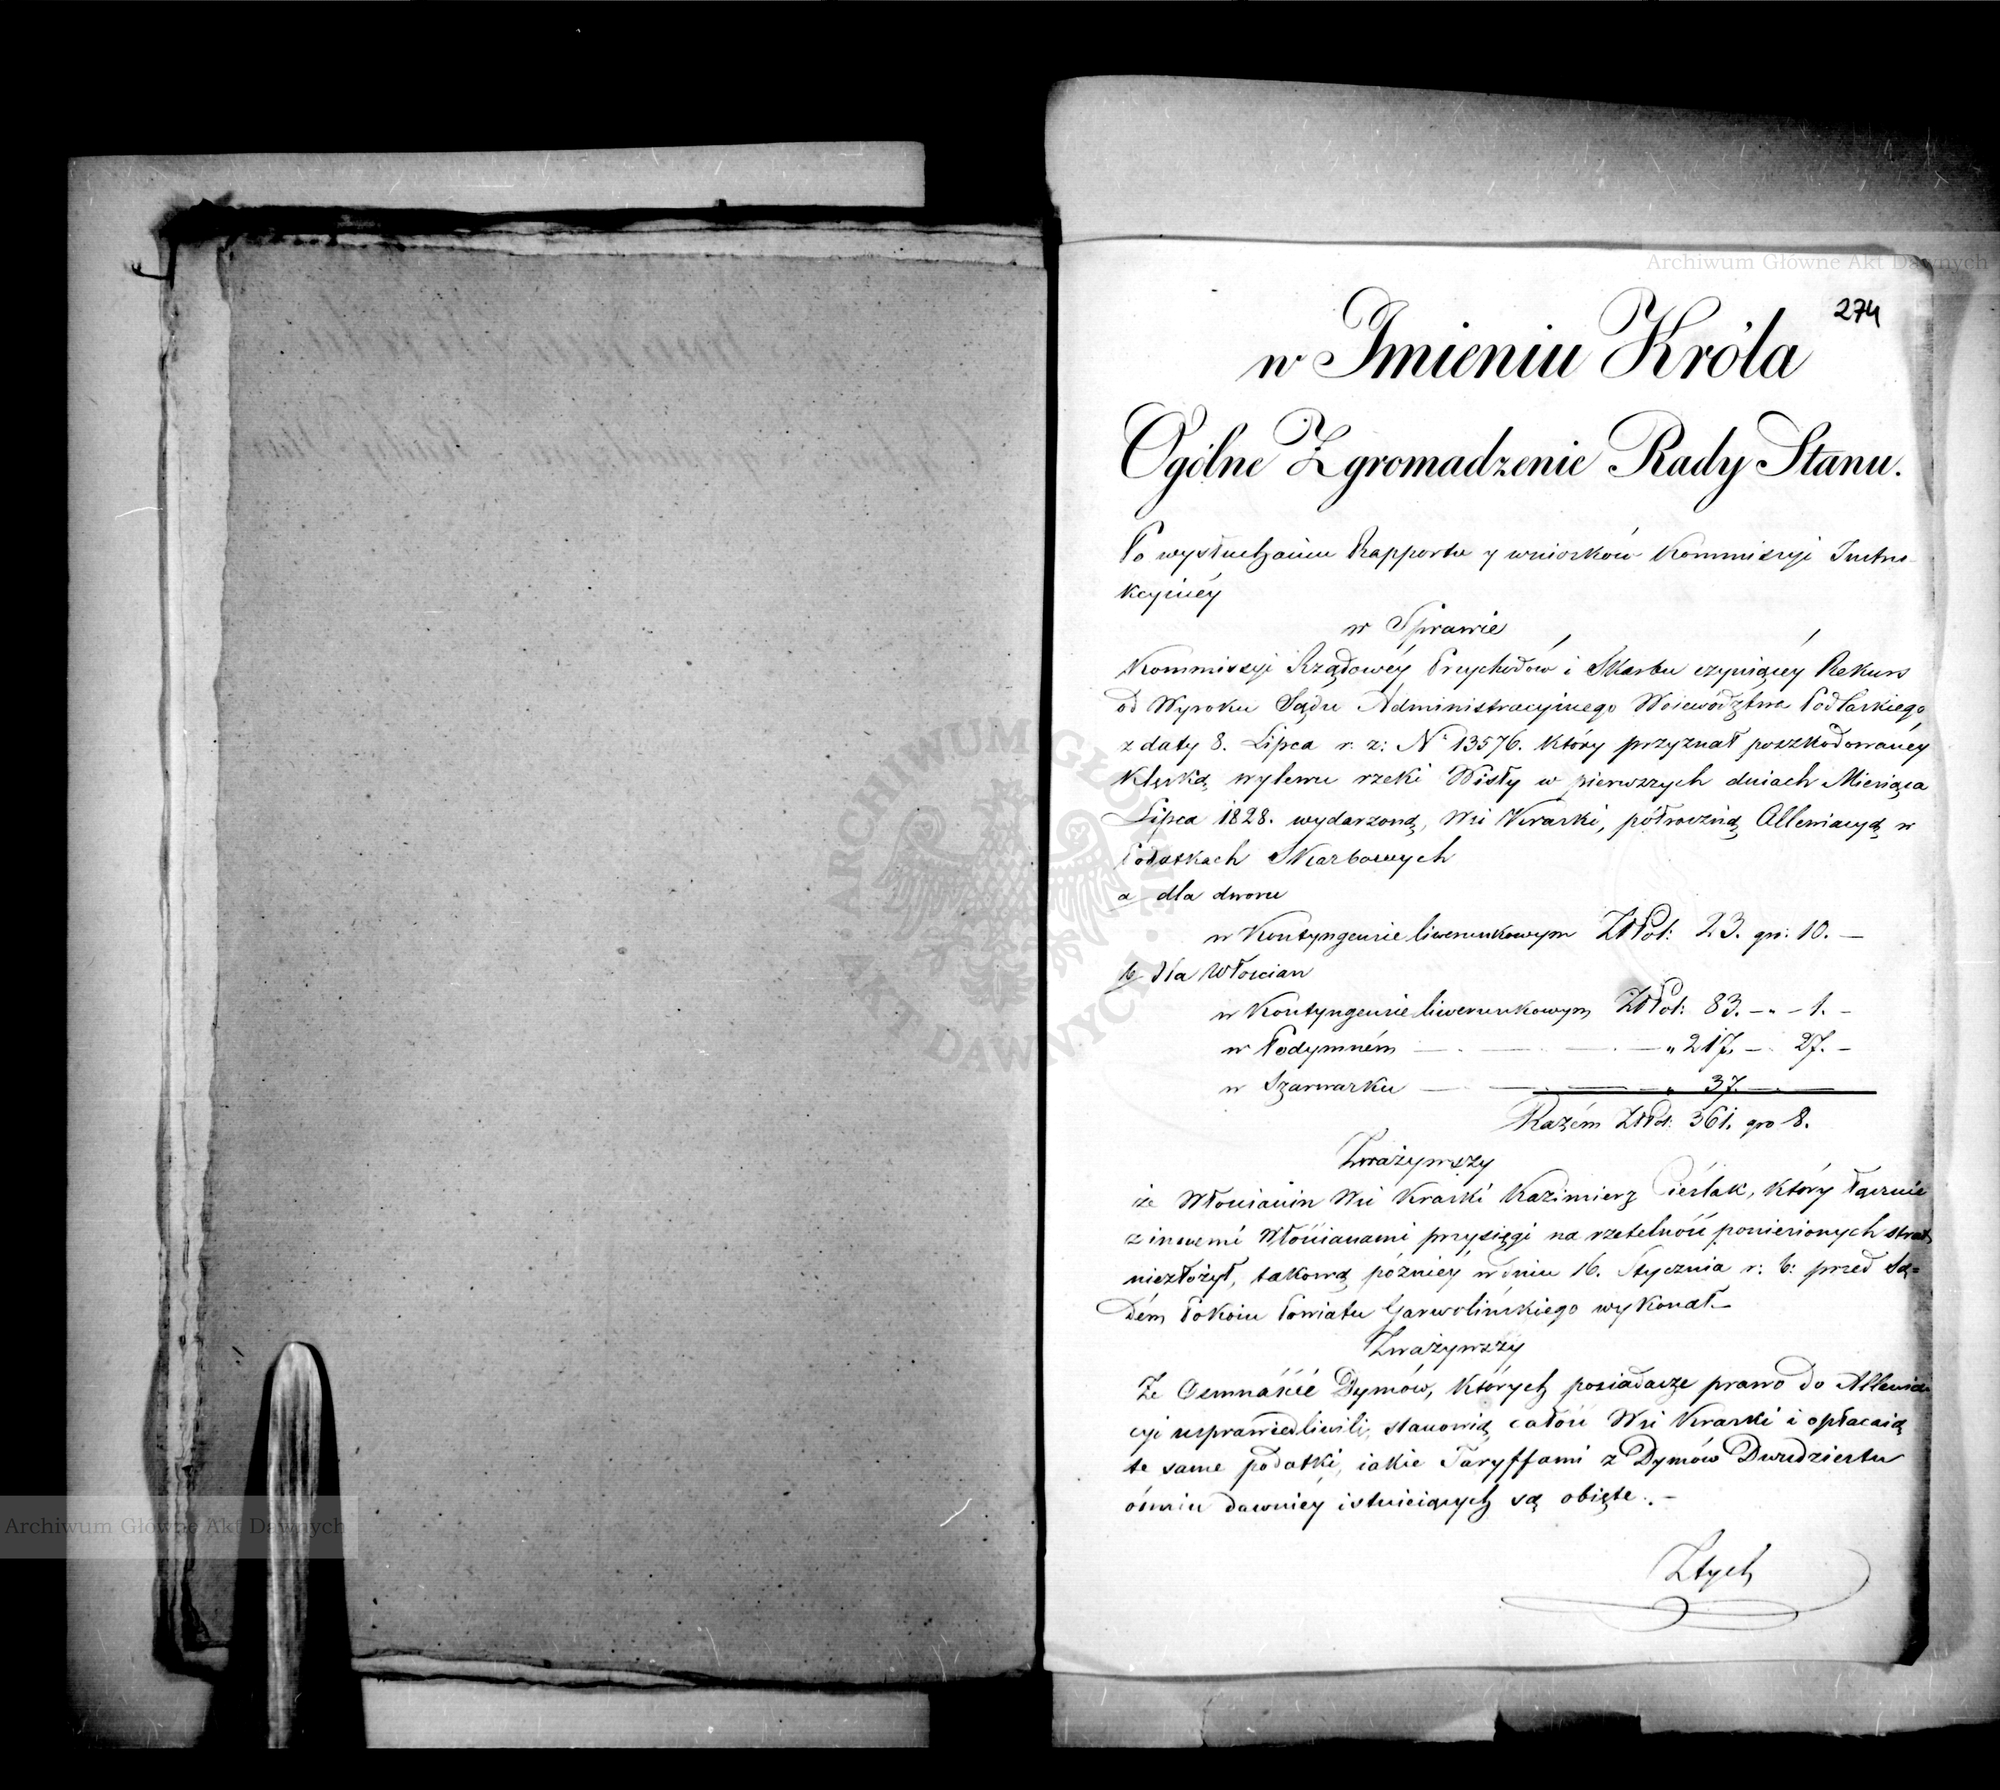 274
w Imieniu Króla
Ogólne Zgromadzenie Rady Stanu.
Po wysłuchaniu Rapportu y wniosków Kommissyi Instru-
kcyinéy
w Sprawie
Kommissyi Rządowéy Przychodów i Skarbu czyniącéy Rekurs
od Wyroku Sądu Administracyinego Woiewództwa Podlaskiego
z daty 8. Lipca r. z: No 13576. który przyznał poszkodowanéy
klęską wylewu rzeki Wisły w pierwszych dniach Miesiąca
Lipca 1828. wydarzoną, Wsi Kraski, półroczną Allewiacyą w
Podatkach Skarbowych
a dla dworu
w Kontyngensie liwerunkowym ZłPol: 23. gr: 10. —
b dla Włościan
w Kontyngensie liwerunkowym ZłPol: 83. — „ — 1. —
w Podymném — „ 217. — 27. —
w Szarwarku — „ 37. —
Razém ZłPol: 361. gro 8.
Zważywszy
że Włościanin Wsi Kraski Kazimierz Cieślak, który łącznie
z innemi Włościanami przysięgi na rzetelność poniesionych strat
niezłożył, takową późniéy w dniu 16. Stycznia r: b: przed Są=
dém Pokoiu Powiatu Garwolińskiego wykonał. —
Zważywszy
Że Osmnaście Dymów, których posiadacze prawo do Allewia-
cyi usprawiedliwili, stanowią całość Wsi Kraski i opłacaią
te same podatki, iakie Taryffami z Dymów Dwudziestu
ośmiu dawniéy istnieiących są obięte. —
Z tych
Archiwum Główne Akt Dawnych
Archiwum Główne Akt Dawnych
ARCHIWUM GŁÓWNE · AKT DAWNYCH ·